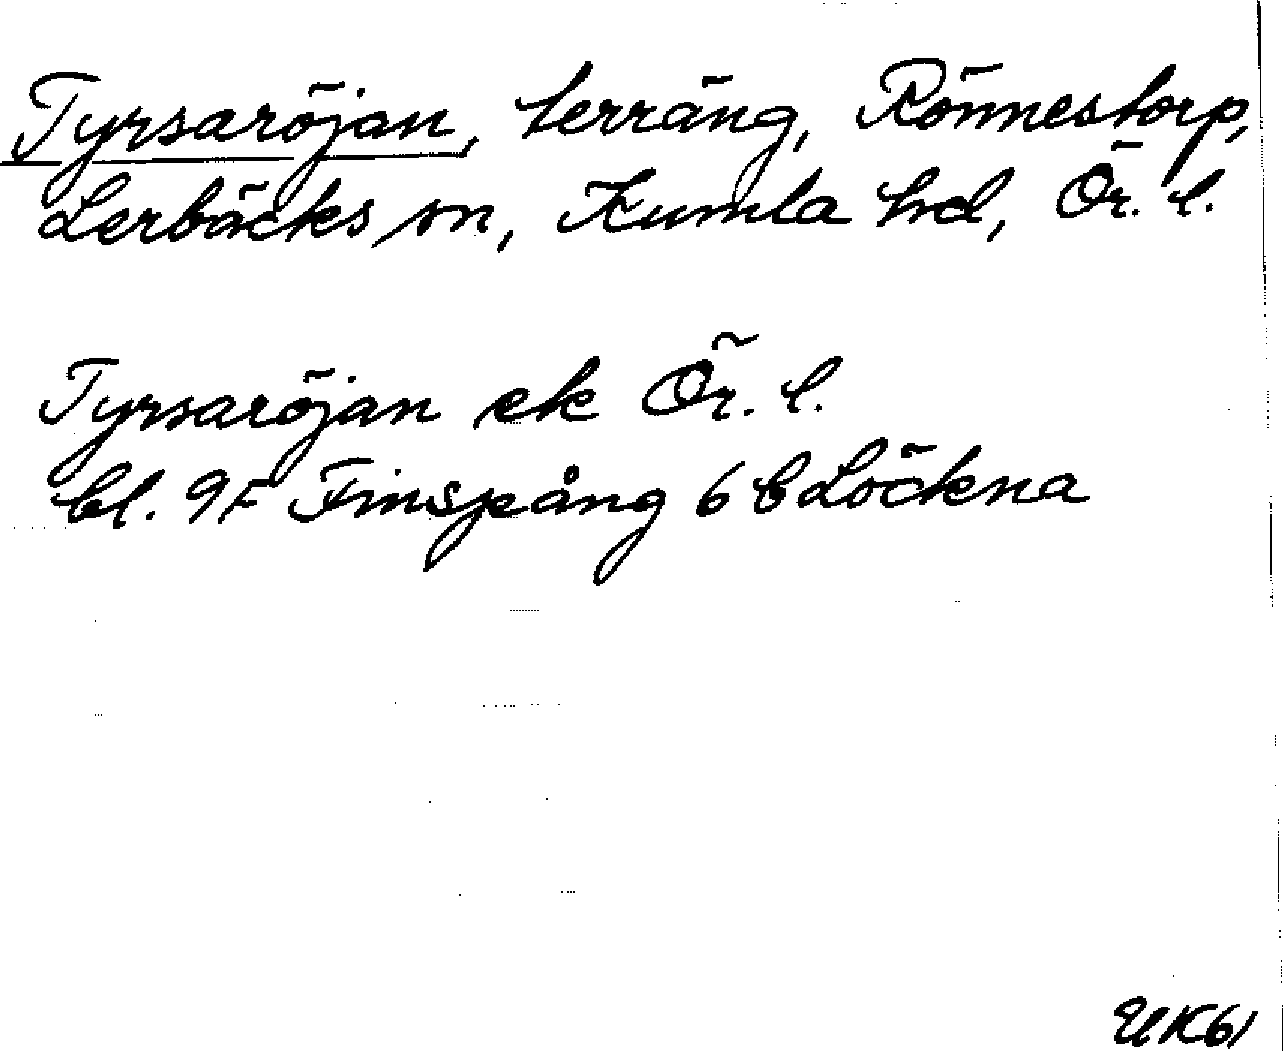 Tyrsaröjan, terräng, Rönnestorp,
Lerbäcks sn, Kumla hd, Ör. l.
Tyrsaröjan ek Ör. l.
bl. 9F Finspång 6b Löckna
UK61